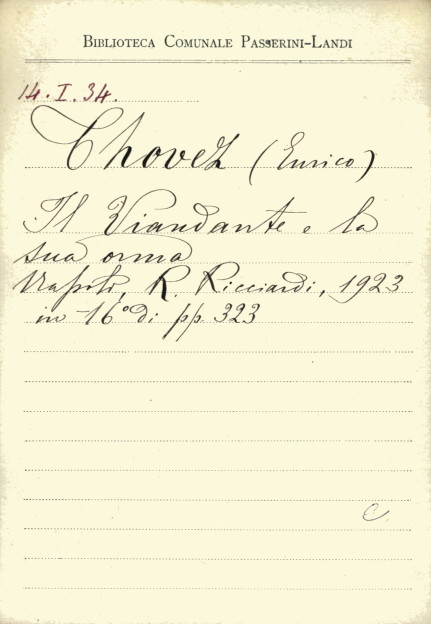 BIBLIOTECA COMUNALE PASSERINI-LANDI
14. I. 34.
Thovez (Enrico)
Il Viandante e la
sua orma
Napoli, R. Ricciardi, 1923
in 16° di pp. 323
C.